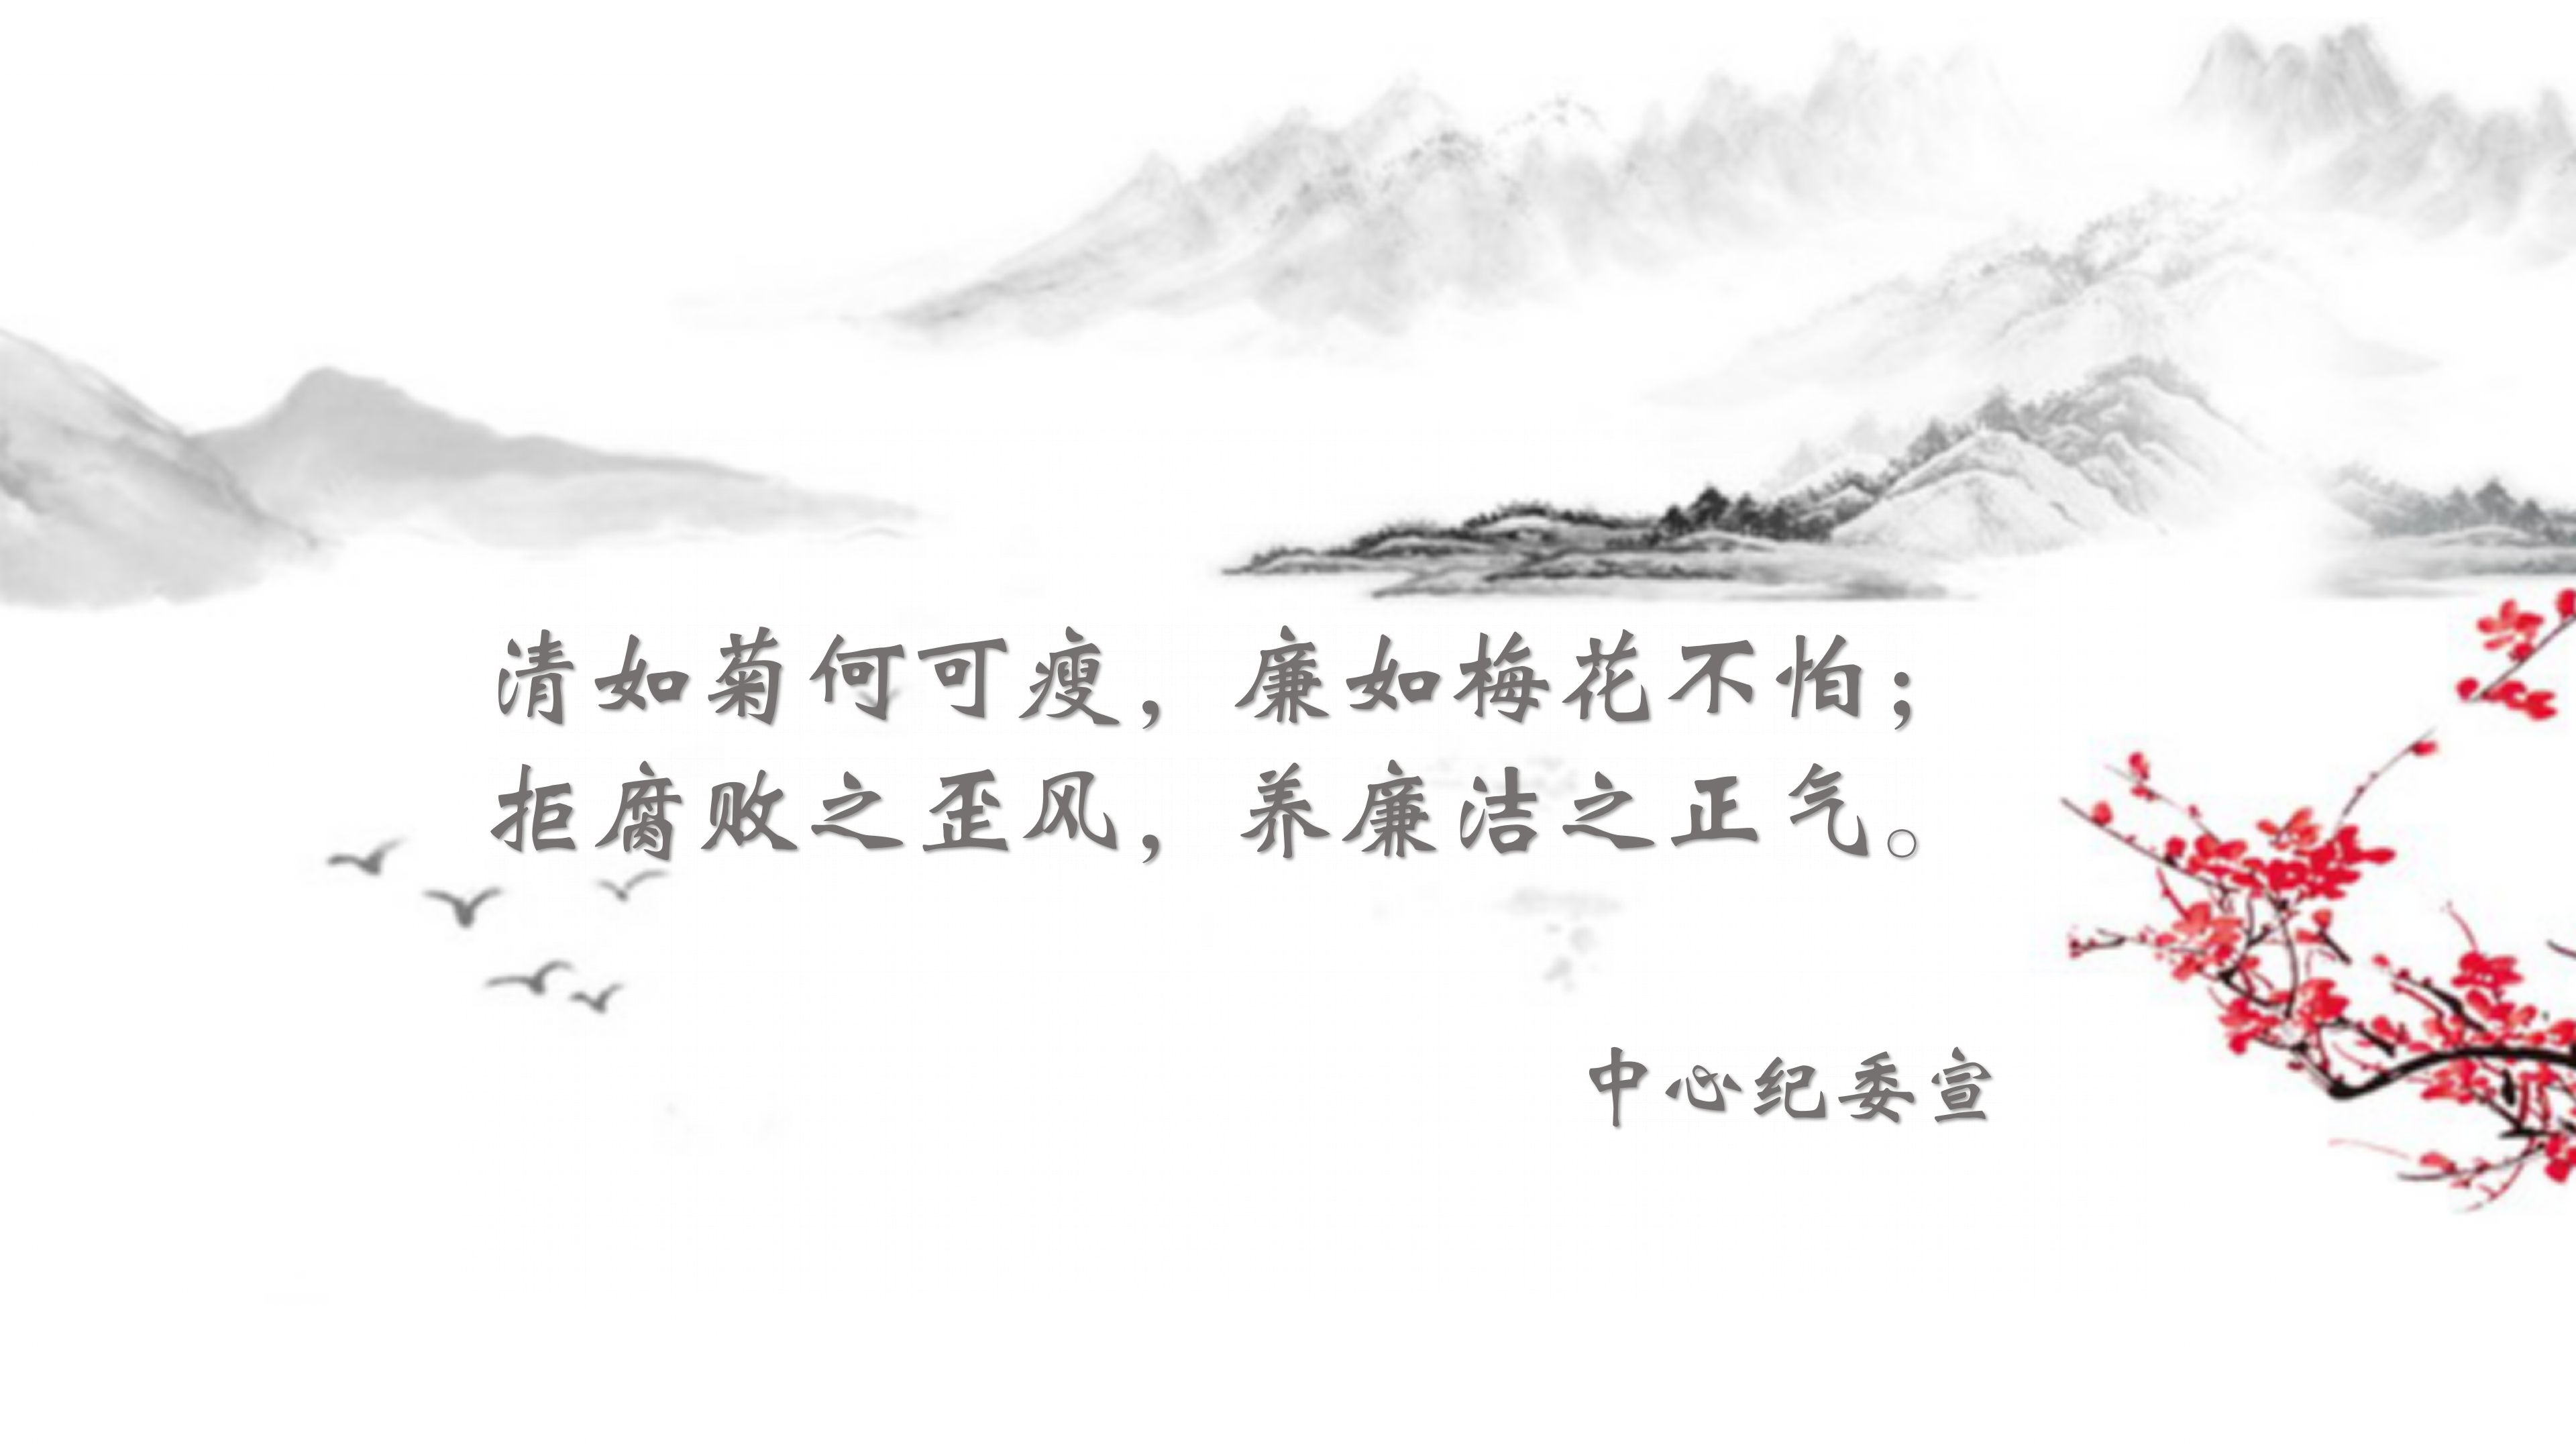 清如菊何可瘦，廉如梅花不怕；
拒腐败之歪风，养廉洁之正气。
中心纪委宣